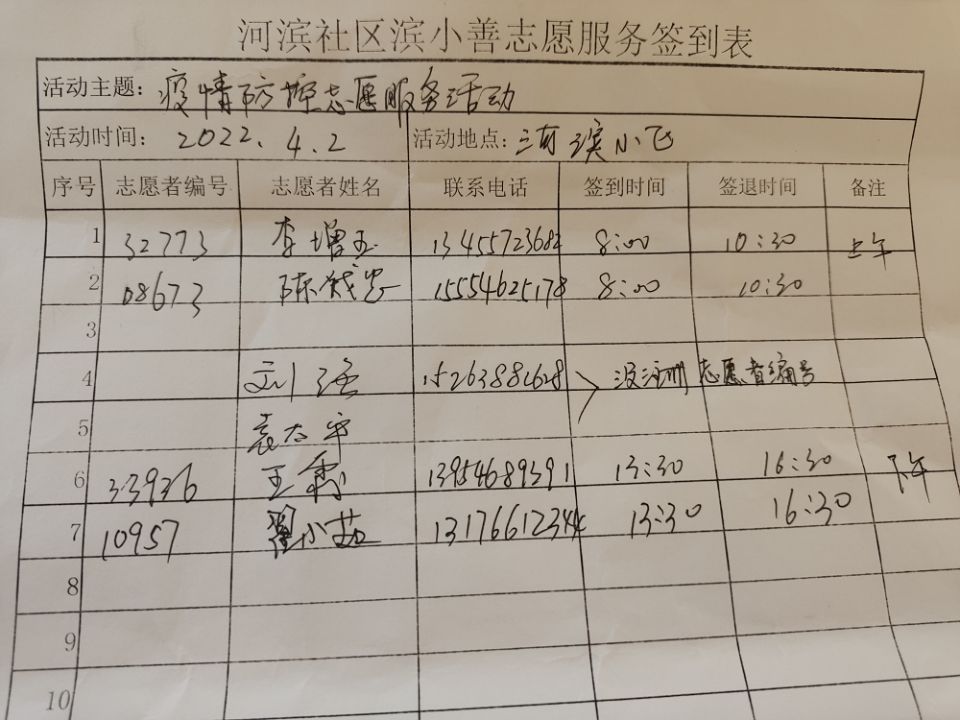 河滨社区滨小善志愿服务签到表
活动主题: 疫情防控志愿服务活动
活动时间: 2022.4.2 活动地点: 河滨小区
序号 志愿者编号 志愿者姓名 联系电话 签到时间 签退时间 备注
1 32773 李增玉 13455723682 8:00 10:30 上午
2 08673 陈 15554625178 8:00 10:30
3
4 刘 15263881628 没注册志愿者编号
5 袁太平
6 33936 王霞 13954689391 13:30 16:30 下午
7 10957 翟小茹 13176612344 13:30 16:30
8
9
10